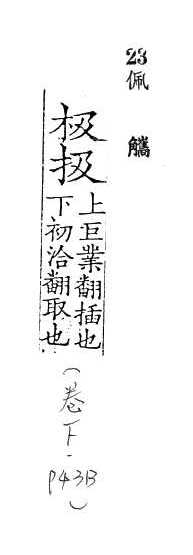 23
佩觿
极扱
上巨業翻插也
下初洽翻取也
(卷下.P43B)